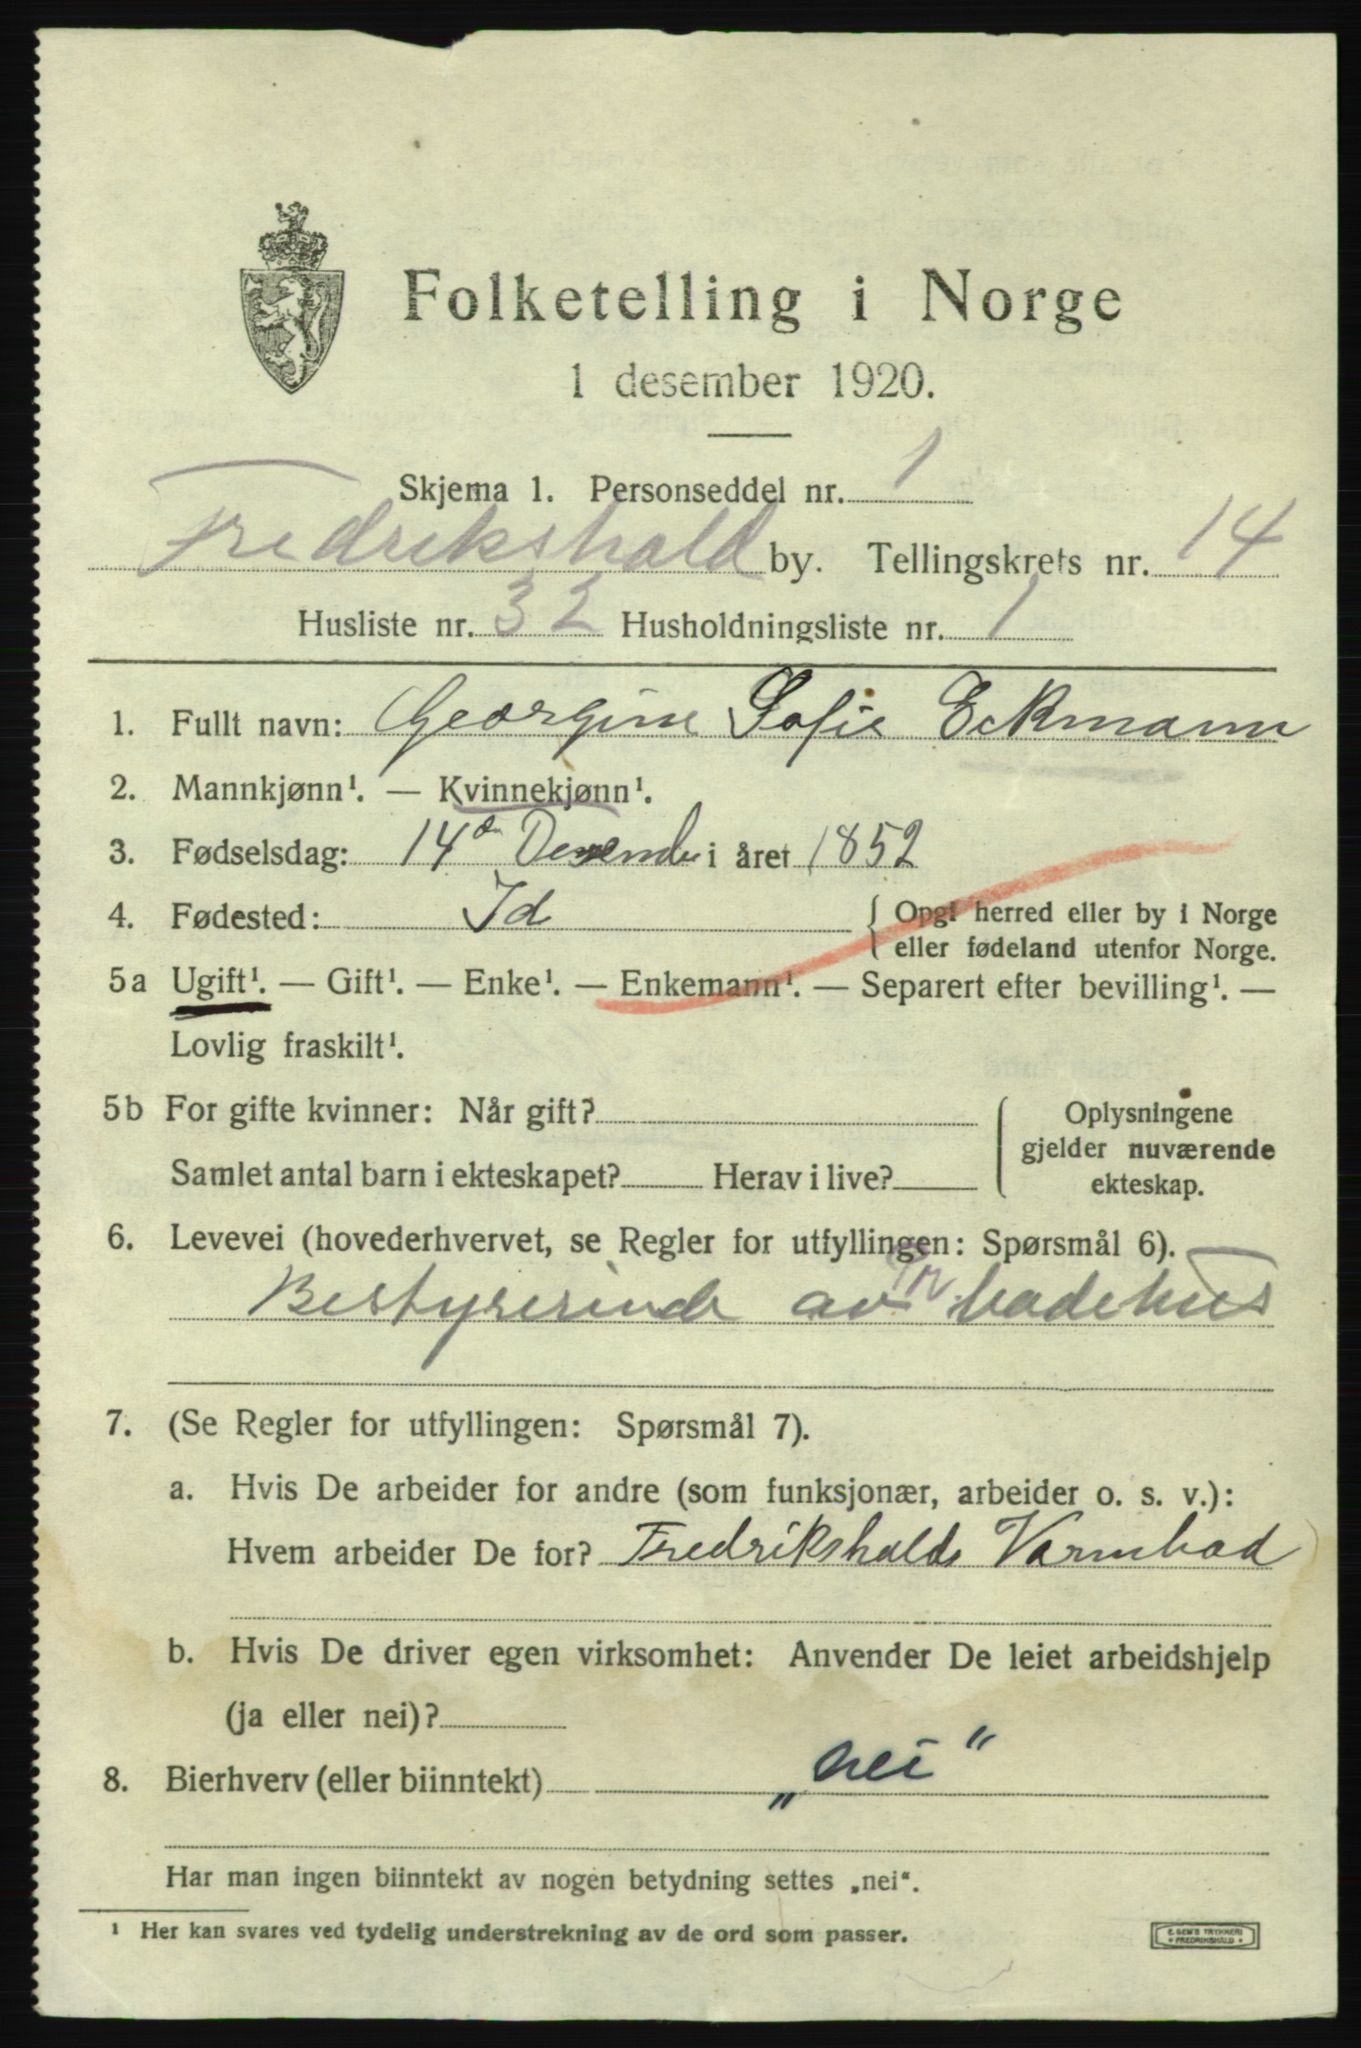 Folketelling i Norge
1 desember 1920.
Skjema 1. Personseddel nr. 1
Fredrikshald by. Tellingskrets nr. 14
Husliste nr. 32 Husholdningsliste nr. 1
1. Fullt navn: Georgine Sofie Eckmann
2. Mannkjønn¹. — Kvinnekjønn¹.
3. Fødselsdag: 14de Desember i året 1852
4. Fødested: Id { Opgi herred eller by i Norge
eller fødeland utenfor Norge.
5a Ugift¹. — Gift¹. — Enke¹. — Enkemann¹. — Separert efter bevilling¹. —
Lovlig fraskilt¹.
5b For gifte kvinner: Når gift? { Oplysningene
gjelder nuværende
Samlet antal barn i ekteskapet? Herav i live?
ekteskap.
6. Levevei (hovederhvervet, se Regler for utfyllingen: Spørsmål 6).
Bestyrerinde av badehus
7. (Se Regler for utfyllingen: Spørsmål 7).
a. Hvis De arbeider for andre (som funksjonær, arbeider o. s. v.):
Hvem arbeider De for? Fredrikshalds Varmbad
b. Hvis De driver egen virksomhet: Anvender De leiet arbeidshjelp
(ja eller nei)?
8. Bierhverv (eller biinntekt) „nei"
Har man ingen biinntekt av nogen betydning settes „nei".
¹ Her kan svares ved tydelig understrekning av de ord som passer.
E. SEM'S TRYKKERI
• FREDRIKSHALD •